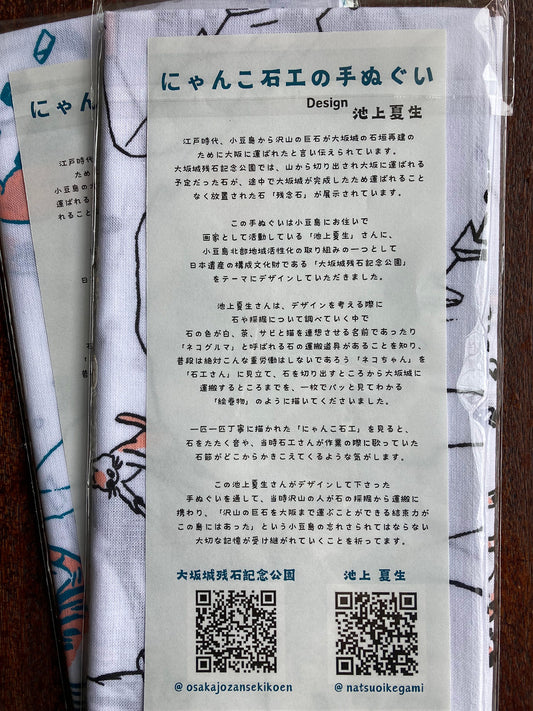 にゃんこ石工の手ぬぐい
Design 池上夏生
江戸時代、小豆島から沢山の巨石が大坂城の石垣再建の
ために大阪に運ばれたと言い伝えられています。
大坂城残石記念公園では、山から切り出され大阪に運ばれる
予定だった石が、途中で大坂城が完成したため運ばれること
なく放置された石「残念石」が展示されています。
この手ぬぐいは小豆島にお住いで
画家として活動している「池上夏生」さんに、
小豆島北部地域活性化の取り組みの一つとして
日本遺産の構成文化財である「大坂城残石記念公園」
をテーマにデザインしていただきました。
池上夏生さんは、デザインを考える際に
石や採掘について調べていく中で
石の色が白、茶、サビと猫を連想させる名前であったり
「ネコグルマ」と呼ばれる石の運搬道具があることを知り、
普段は絶対こんな重労働はしないであろう「ネコちゃん」を
「石工さん」に見立て、石を切り出すところから大坂城に
運搬するところまでを、一枚でパッと見てわかる
「絵巻物」のように描いてくださいました。
一匹一匹丁寧に描かれた「にゃんこ石工」を見ると、
石をたたく音や、当時石工さんが作業の際に歌っていた
石節がどこからかきこえてくるような気がします。
この池上夏生さんがデザインして下さった
手ぬぐいを通して、当時沢山の人が石の採掘から運搬に
携わり、「沢山の巨石を大阪まで運ぶことができる結束力が
この島にはあった」という小豆島の忘れさられてはならない
大切な記憶が受け継がれていくことを祈ってます。
大坂城残石記念公園
池上 夏生
@osakajozansekikoen
@natsuoikegami
にゃんこ
江戸時代